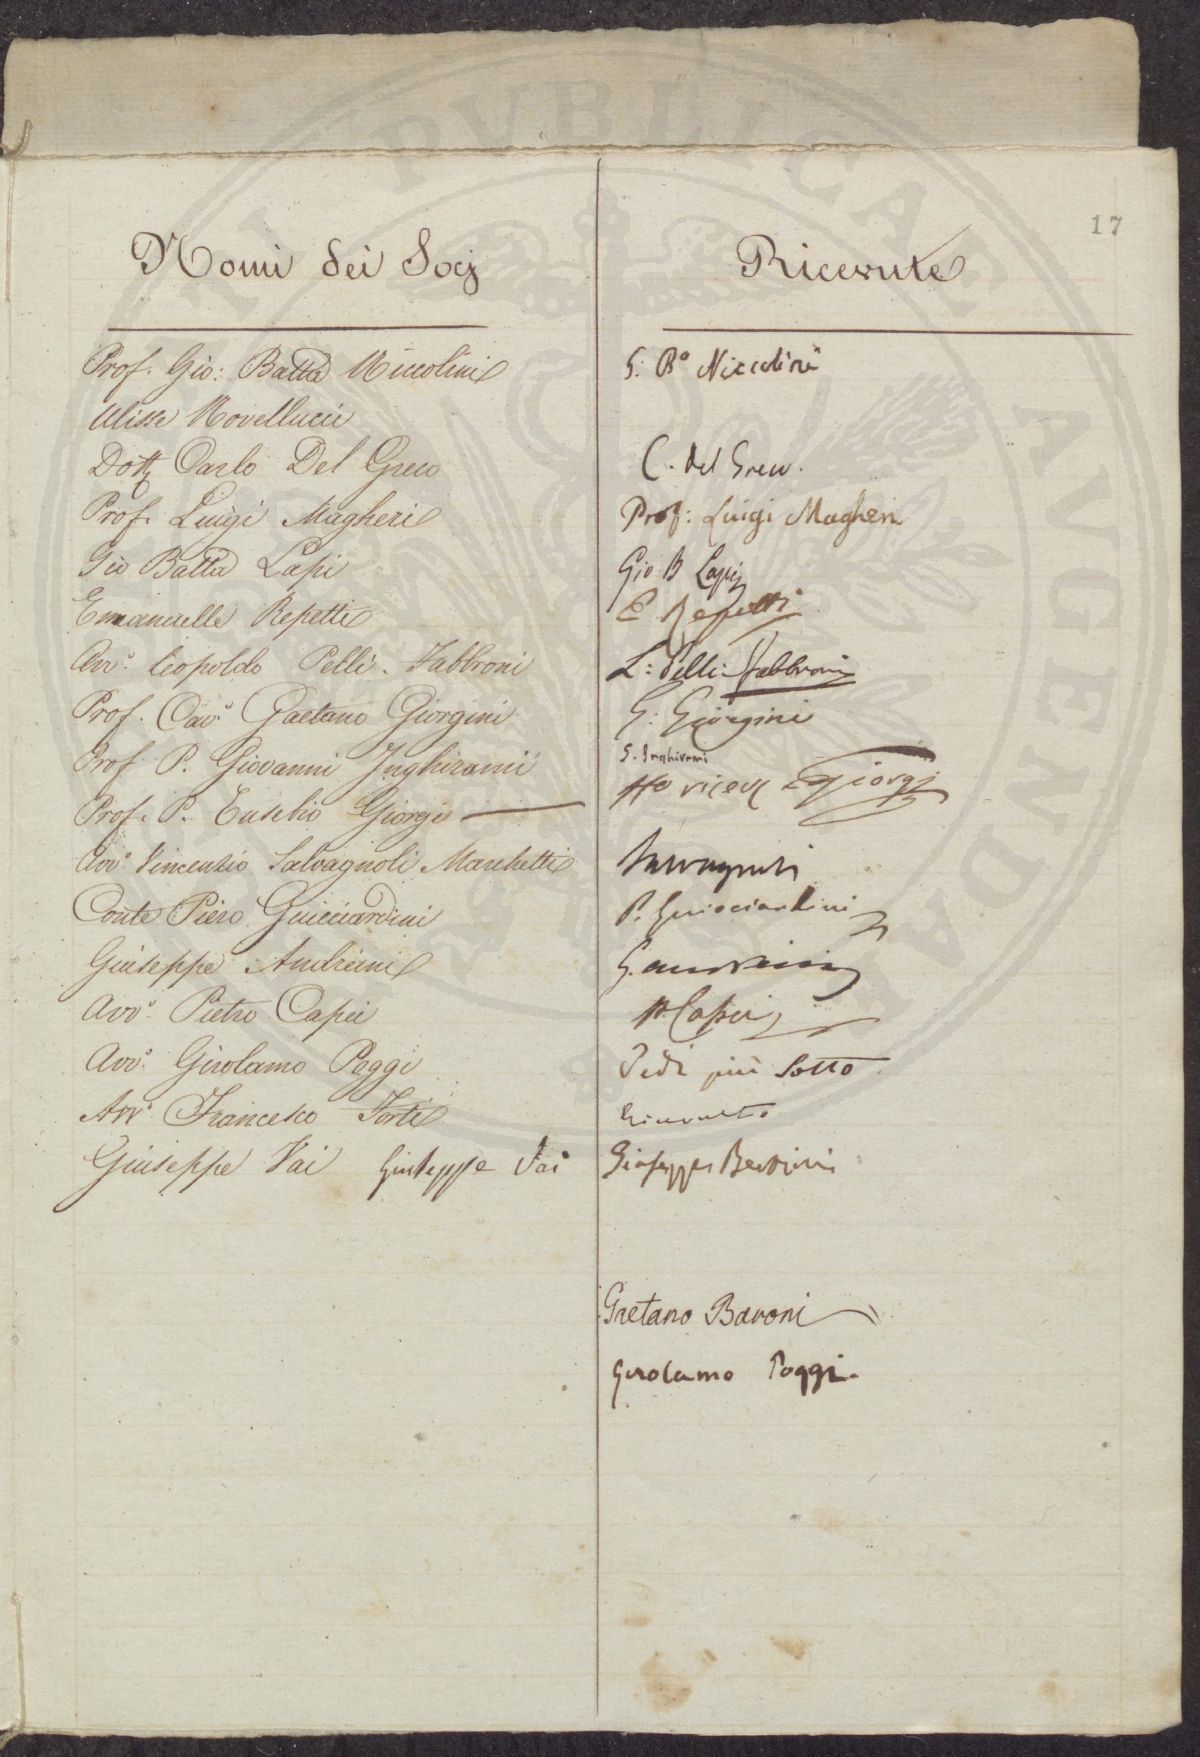 17
Nomi dei Socj
Ricevute
Prof. Gio: Batta Niccolini
G. Bª Niccolini
Ulisse Novellucci
Dott Carlo Del Greco
C. Del Greco.
Prof. Luigi Magheri
Prof: Luigi Magheri
Gio Batta Lapi
Gio B Lapi
Emanuelle Repetti
E Repetti
Avvº. Leopoldo Pelli. Fabbroni
L: Pelli Fabbroni
Prof. Cavº. Gaetano Giorgini
G: Giorgini
Prof. P. Giovanni Inghirami
G. Inghirami
Prof. P. Eusebio Giorgi
Ho ricev. E Giorgi
Avvº. Vincenzio Salvagnoli Marchetti
Salvagnoli
Conte Piero Guicciardini
P. Guicciardini
Giuseppe Andreini
G. Andreini
Avvº. Pietro Capei
P. Capei
Avvº. Girolamo Poggi
Vedi più Sotto
Avvº. Francesco Forti
Giuseppe Vai Giuseppe Vai
Giuseppe Bertini
Gaetano Baroni
Girolamo Poggi.
PVBLICAE AVGENDAE